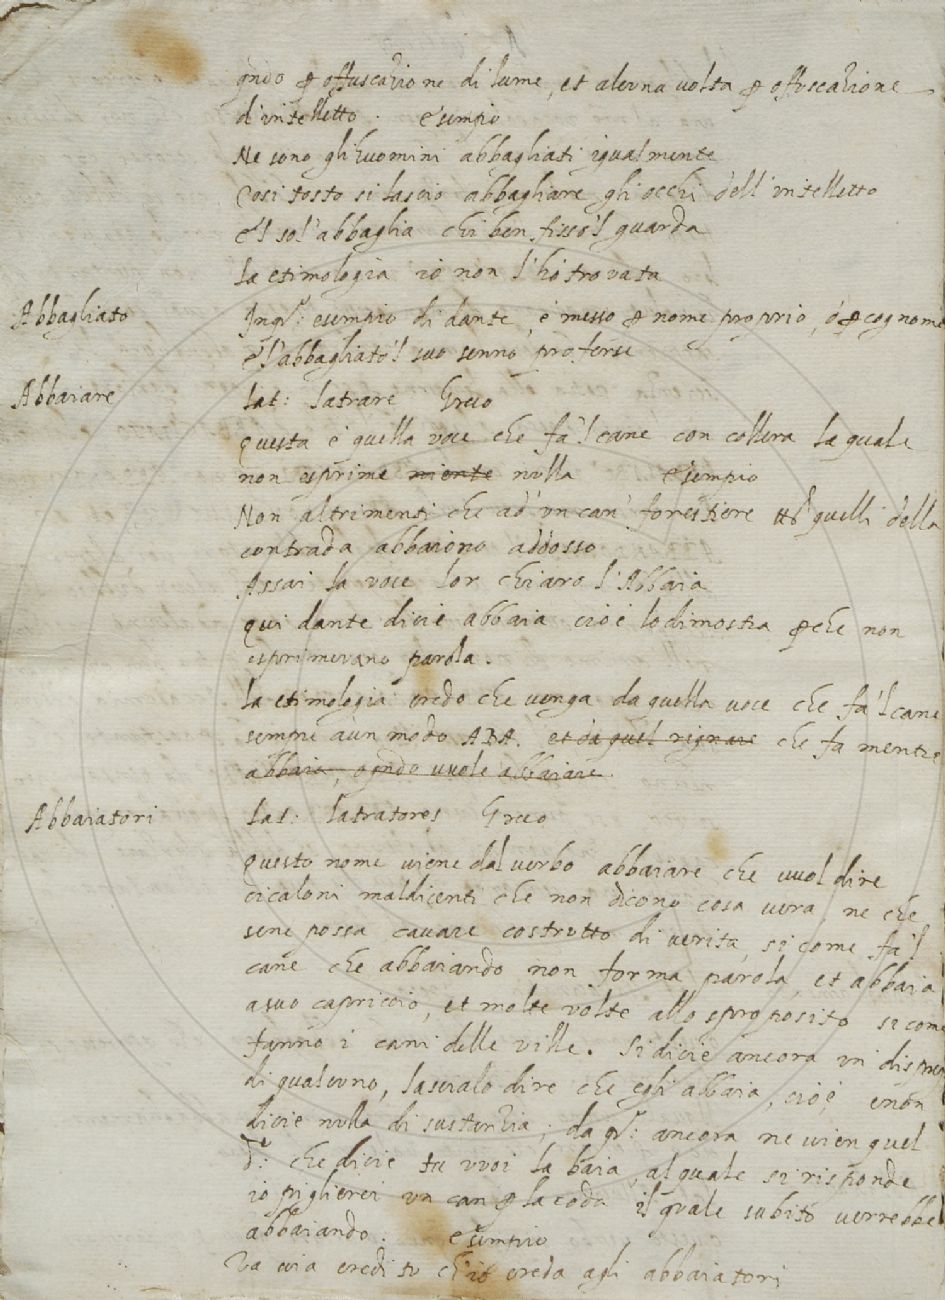 qndo p offuscazione di lume, et alcuna uolta p offuscazione
d'intelletto. Esempio
Ne sono gli huomini abbagliati igualmente
Cosi tosto si lascio abbagliare gli occhi dell'intelletto
E'l sol' abbaglia chi ben fisso'l guarda
la etimologia io non l'hò trovata
Abbagliato
In qsto esempio di dante, è messo p nome proprio, ò p cognome
E l'abbagliato'l suo senno proferse
Abbaiare
lat: latrare Greco
questa è quella voce che fà'l cane con collera la quale
non esprime niente nulla Esempio
Non altrimenti che ad un can' forestiere quelli della
contrada abbaiono addosso
Assai la voce lor chiaro l'Abbaia
qui dante dicie abbaia cioè lo dimostra pche non
esprimevano parola.
la etimologia credo che venga da quella voce che fà'l cane
sempre à un modo ABA. et da quel rignare che fa mentre
abbaia, o qndo vuole abbaiare.
Abbaiatori
lat: latratores Greco
questo nome viene dal verbo abbaiare che vuol dire
cicaloni maldicenti che non dicono cosa vera, ne che
sene possa cavare costrutto di verita, si come fà'l
cane che abbaiando non forma parola, et abbaia
a suo capriccio, et molte volte allo sproposito si come
fanno i cani delle ville. Si dicie ancora in
di qualcuno, lascialo dire che egli abbaia, cioè, e non
dicie nulla di sustanzia; da qsto ancora ne vien quel
che dicie tu vuoi la baia, al quale si risponde
io piglierei un can p la coda il quale subito verrebbe
abbaiando. Esempio
Va via credi tu ch'io creda agli abbaiatori